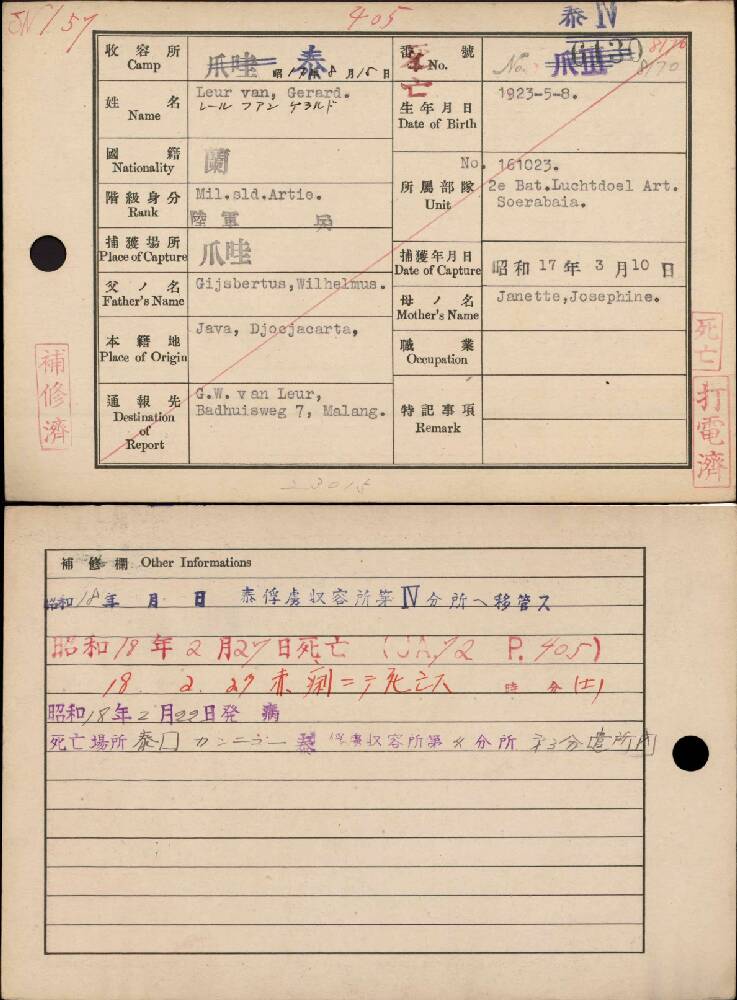 405
泰 IV
收容所 Camp 爪哇 泰 昭17年8月15日
番號 No. 死亡 No. 爪III 6130 8170
姓名 Name Leur van, Gerard.
レール フアン ゲラルド
生年月日 Date of Birth 1923-5-8.
國籍 Nationality 蘭
階級身分 Rank Mil.sld.Artie.
陸軍 兵
所屬部隊 Unit No. 161023.
2e Bat.Luchtdoel Art.
Soerabaia.
捕獲場所 Place of Capture 爪哇
捕獲年月日 Date of Capture 昭和17年3月10日
父ノ名 Father's Name Gijsbertus,Wilhelmus.
母ノ名 Mother's Name Janette,Josephine.
本籍地 Place of Origin Java, Djocjacarta,
職業 Occupation
通報先 Destination of Report G.W. van Leur,
Badhuisweg 7, Malang.
特記事項 Remark
補修濟
死亡
打電濟
23015
補修欄 Other Informations
昭和18年 月 日 泰俘虜収容所第IV分所へ移管ス
昭和18年2月27日死亡 (JA.72 P.405)
18. 2. 27 赤痢ニテ死亡ス 時 分 (土)
昭和18年2月22日発病
死亡場所 泰国 カンニユー 泰俘虜収容所第4分所